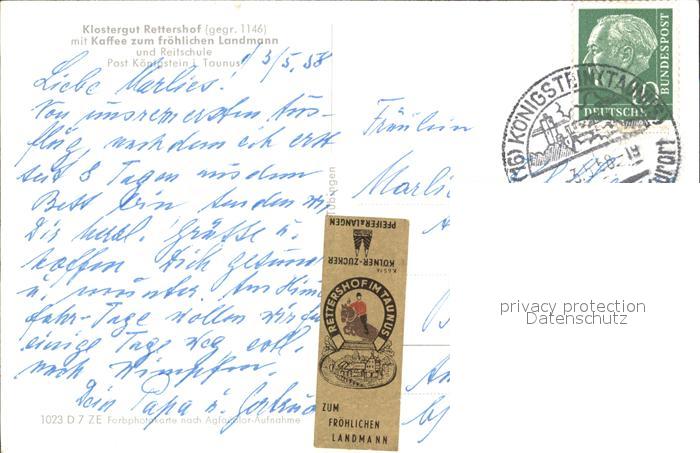 Klostergut Rettershof (gegr. 1146)
mit Kaffee zum fröhlichen Landmann
und Reitschule
Post Königstein i. Taunus
3/5. 58
Liebe Marlies!
Von unserem ersten Aus-
flug, nachdem ich erst
seit 8 Tagen aus dem
Bett bin senden wir
Dir herzl. Grüsse u.
hoffen Dich gesund
u. munter. Am Himmel
fahr-Tage wollen wir
einige Tage weg evtl.
nach Wimpfen.
Dein Papa u. Gertrud
1023 D 7 ZE Farbphotokarte nach Agfacolor-Aufnahme
Tübingen
Fräulein
Marli
PFEIFER & LANGEN
KÖLNER-ZUCKER
RETTERSHOF IM TAUNUS
ZUM
FRÖHLICHEN
LANDMANN
DEUTSCHE
BUNDESPOST
10
(16) KÖNIGSTEIN (TAUNUS)
3.5.58-19
Kurort
privacy protection
Datenschutz